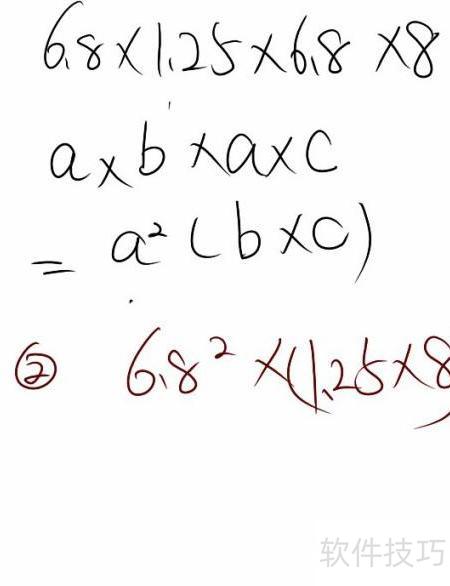 6.8×1.25×6.8×8
a×b×a×c
= a²(b×c)
② 6.8²×(1.25×8)
软件技巧